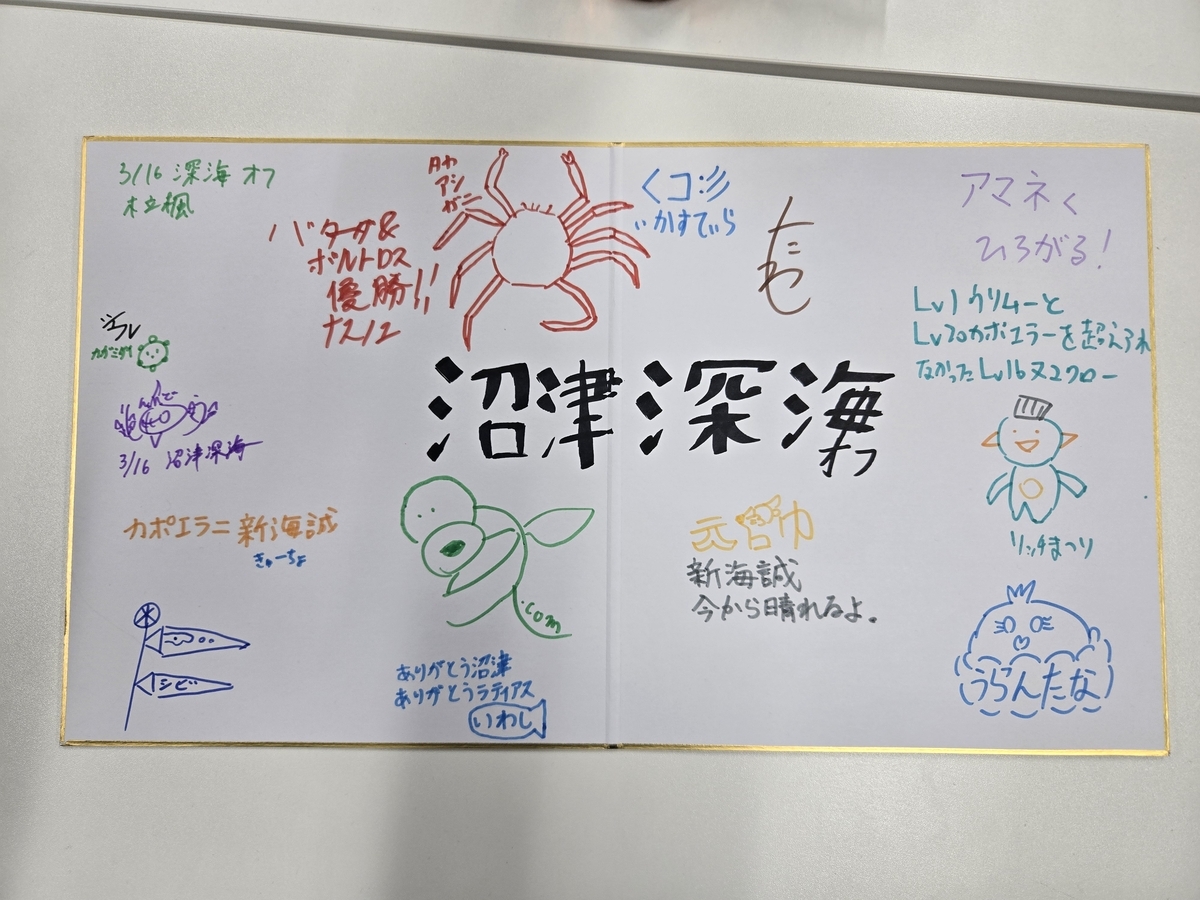 3/16 深海オフ
木立楓
タカ
アシ
ガニ
バターサ&
ボルトロス
優勝!!
ナスノエ
くコ:彡
いかすてぃら
たわし
アマネく
ひろがる!
Lv1ウリムーと
Lv20カポエラーを超えられ
なかったLv16ヌエクロー
リッチまつり
沼津深海
オフ
3/16 沼津深海
カポエラニ新海誠
きゅーちょ
シビ
.com
ありがとう沼津
ありがとうラティアス
いわし
新海誠
今から晴れるよ。
うらんたな